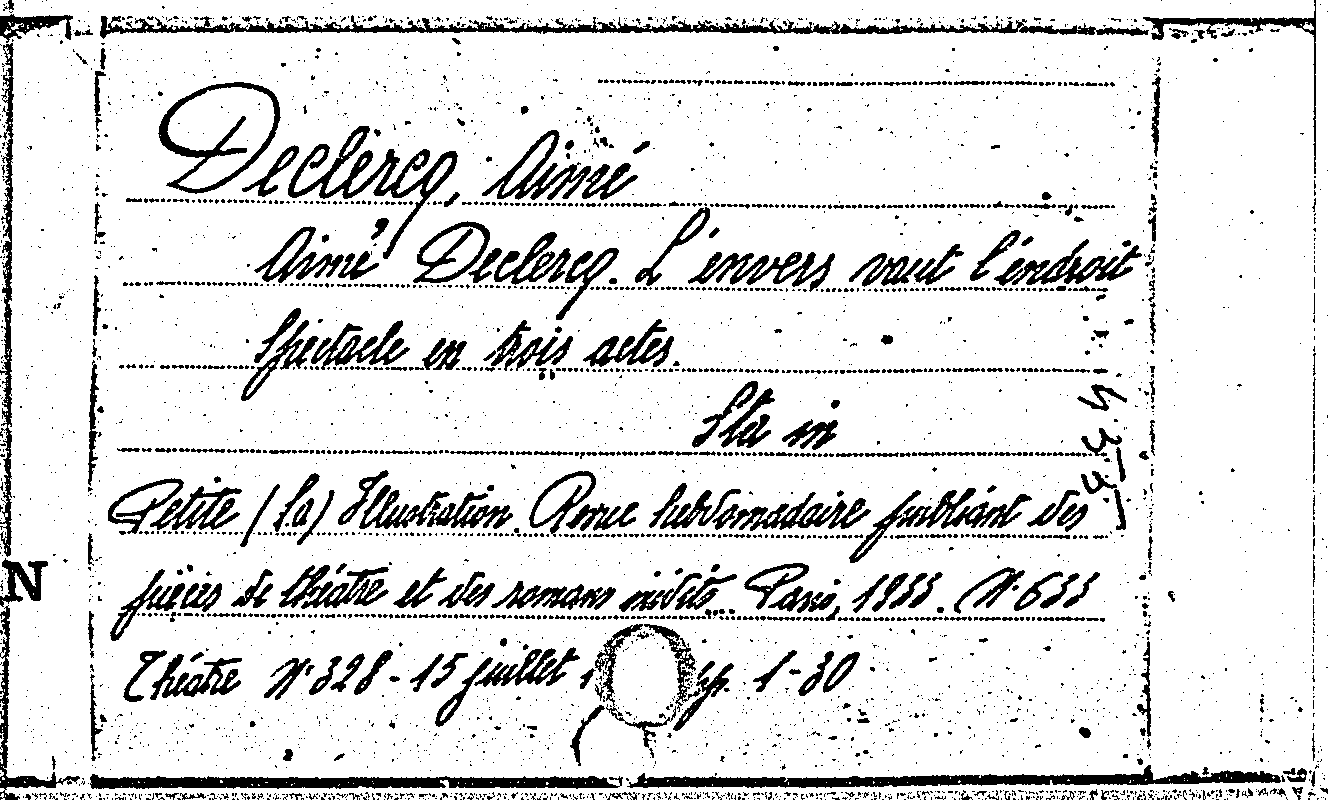 Declercq, Aimé
Aimé Declercq. L'envers vaut l'endroit
Spectacle en trois actes.
Sta in
Petite (La) Illustration. Revue hebdomadaire publiant des
pièces de théâtre et des romans inédits. Paris, 1933. (N° 633
Théâtre N° 328 - 15 juillet 1 pp. 1-30
N